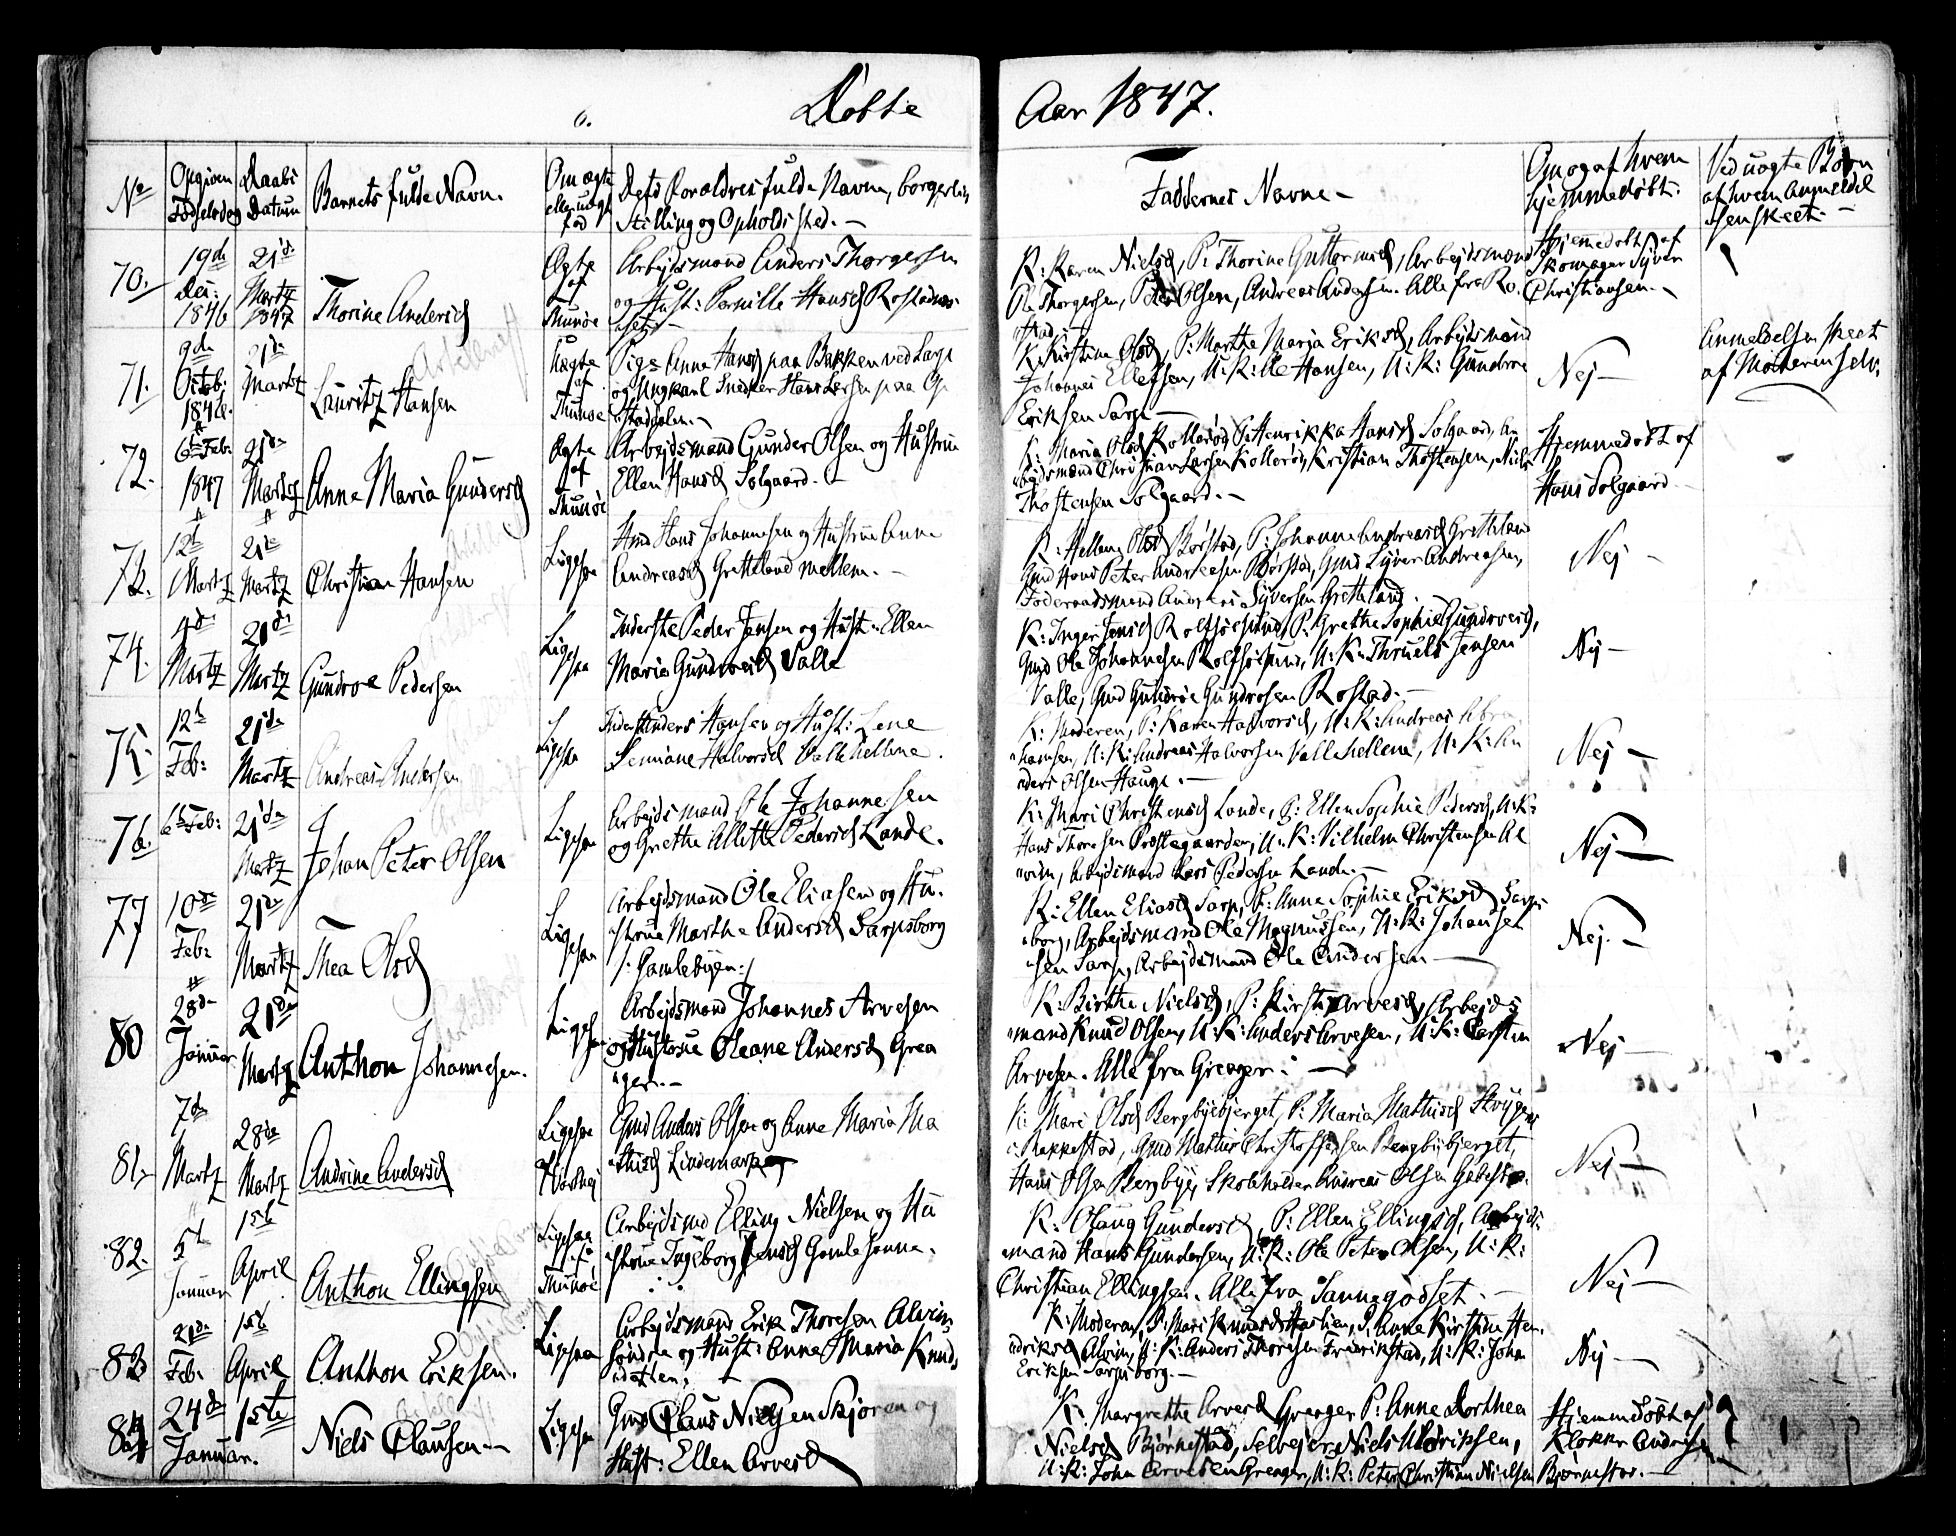 Døbte Aar 1847.
No
Opgiven Fødselsdag
Daabs Datum
Barnets fulde Navn.
Om ægte eller uægte fød
Dets Forældres fulde Navne, borgerlig Stilling og Opholdssted. —
Faddernes Navne —
Om og af hvem hjemmedøbt.
Ved uægte Børn af hvem Anmeldelsen skeet. —
70.
19de Dec: 1846
21de Martz 1847
Thorine Andersd
Ægte af Thunøe
Arbejdsmand Anders Thorgersen
og Hust: Pernille Hansd Rostadne-
set. —
K: Karen Nielsd, P: Thorine Guttormsd, Arbejdsmænd
Ole Thorgersen, Peder Olsen, Andreas Andersen. Alle fra Ro-
stad.
Hjemmedøbt af
Skomager Syver
Christiansen. —
71.
9de Octob: 1846.
21de Martz
Lauritz Hansen
Uægte af Thunøe
Pige Anne Hansd paa Bakken ved Sarp
og Ungkarl Snedker Hans Larsen paa Op
stadsalen. —
K: Kirstine Olsd, P: Marthe Marja Eriksd, Arbejdsmand
Johannes Ellefsen, U: K: Ole Hansen, U: K: Gundroe
Eriksen Sarp —
Nej —
Anmeldelsen skeet
af Moderen selv.
72.
6te Feb: 1847
21de Martz
Anna Maria Gundersd
Ægte af Thunøe
Arbejdsmand Gunder Olsen og Hustrue
Ellen Hansd Solgaard. —
K: Maria Olsd Kollerød, P: Henrikka Hansd Solgaard, Ar-
bejdsmænd Christian Larsen Kollerød, Kristian Thostensen, Niels
Thostensen Solgaard. —
Hjemmedøbt af
Hans Solgaard
73.
12te Martz
21de Martz
Christian Hansen
Ligesaa
Gmd Hans Johannesen og Hustrue Anne
Andreasd Grethland mellem. —
K: Hellene Olsd Borstad, P: Johanne Andreasd Grethland
Gmd Hans Peter Andreasen Borstad, Gmd Syver Andreasen,
Føderaadsmand Andreas Syversen Grethland.
Nej —
74.
4de Martz
21de Martz
Gundroe Pedersen
Ligesaa
Inderste Peder Jensen og Hust: Ellen
Maria Gundroesd Valle
K: Inger Jensd Rolfsøesund, P: Grethe Sophie Gundroesd,
Gmd Ole Johannesen Rolfsøesund, U: K: Thruels Jensen
Valle, Gmd Gundroe Gundrosen Rostad. —
Nej —
75.
12te Feb:
21de Martz
Andreas Andersen
Ligesaa
Inderst Anders Hansen og Hust: Lene
Semiane Halvorsd Valle hellene.
K: Moderen, P: Karen Halvorsd, U: K: Andreas Abra-
hamsen, U: K: Andreas Halvorsen Valle hellene, U: K: An
ders Olsen Hauge. —
Nej —
76.
6te Feb:
21de Martz
Johan Peter Olsen
Ligesaa
Arbejdsmand Ole Johannesen
og Grethe Alette Pedersd Lande.
K: Mari Christensd Lande, P: Ellen Sophie Pedersd, U: K:
Hans Thoresen Prostegaarden, U: K: Vilhelm Christensen Al
vim, Arbejdsmand Lars Pedersen Lande. —
Nej —
77
10de Feb:
21de Martz
Thea Olsd
Ligesaa
Arbejdsmand Ole Eliasen og Hu-
strue Marthe Andersd Sarpsborg
/: Gamlebyen :/
K: Ellen Eliasd Sarp, P: Anne Sophie Eriksd Sarps-
borg, Arbejdsmand Ole Magnussen, U: K: Johan
sen Sarp, Arbejdsmand Ole Andersen —
Nej. —
80
28de Januar
21de Martz
Anthon Johannesen.
Ligesaa
Arbejdsmand Johannes Arvesen
og Hustrue Oleane Andersd Grea
ger. —
K: Birthe Nielsd, P: Kirsti Arvesd, Arbejds
mand Knud Olsen, U: K: Anders Arvesen, U: K: Carsten
Arvesen. Alle fra Greager. —
Nej —
81.
7de Martz
28de Martz
Andrine Andersd
Ligesaa
Gmd Anders Olsen og Anne Maria Ma
thisd Lindemark
K: Mari Olsd Bergbyebjerget, P: Maria Mathisd
Rakkestad, Gmd Mathis Christoffersen Bergbyebjerget,
Hans Olsen Bergbye, Skoleholder Andreas Olsen
Nej —
82.
5te Januar
1ste April
Anthon Ellingsen
Ligesaa af Thunøe
Arbejdsmd Elling Nielsen og Hu
strue Ingeborg Jensd Gamle Sanne.
K: Olaug Gundersd, P: Ellen Ellingsd, Arbejds-
mand Hans Gundersen, U: K: Ole Peter Olsen, U: K:
Christian Ellingsen. Alle fra Sannegodset. —
Nej —
83
21de Feb:
1ste April
Anthon Eriksen.
Ligesaa
Arbejdsmand Erik Thoresen Alvim
søndre og Hust: Anna Maria Knuds
datter.
K: Moderen, P: Mari Knudsd Haslien, P: Anne Kirstine Hen-
driksd Alvim, U: K: Anders Thoresen Fredrikstad, U: K: Johan
Eriksen Sarpsborg. —
Nej —
84
24de Januar.
1ste
Niels Clausen —
Ligesaa
Gmd Claus Nielsen Skjøren og
Hust: Ellen Arvesd
K: Margrethe Arvesd Greager P: Anne Dorthea
Nielsd Bjørnestad, Selvejer Niels Ulriksen,
U: K: John Arvesen Greager, U: K: Peter Christian Nielsen
Hjemmedøbt af
Klokker Andersen
Bjørnestad. —